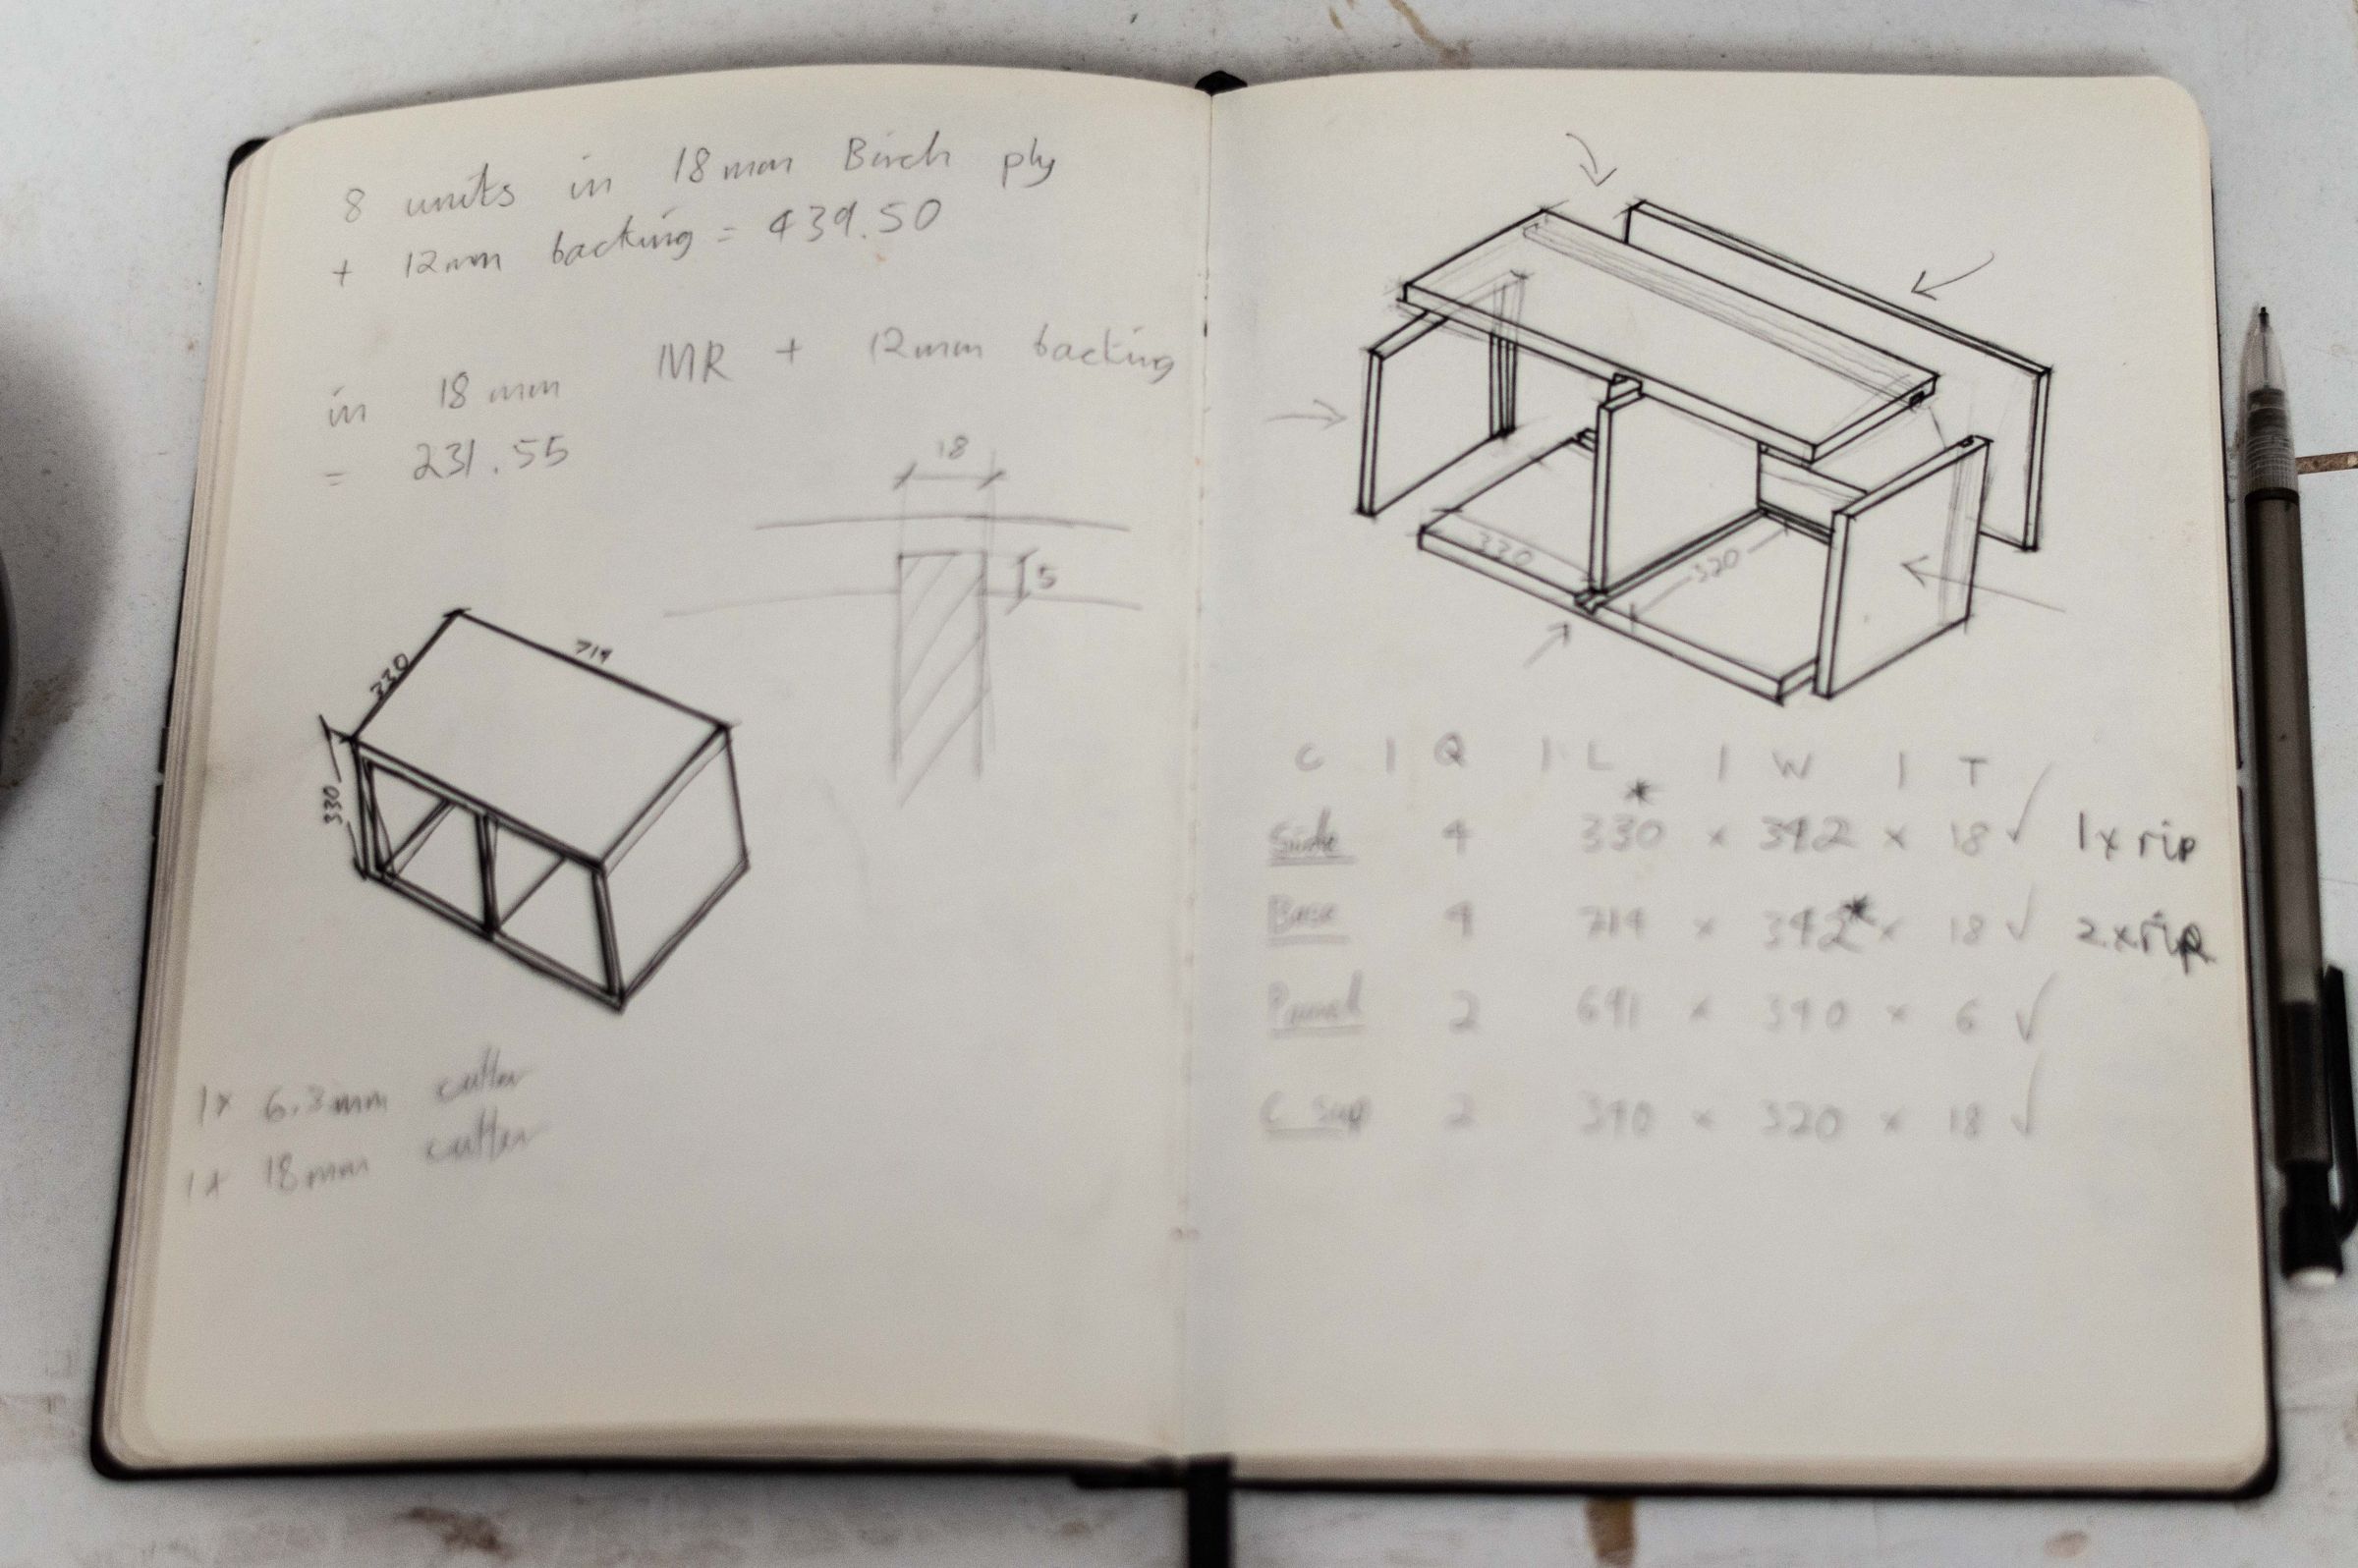 8 units in 18mm Birch ply
+ 12mm backing = 439.50
in 18mm MR + 12mm backing
= 231.55
18
5
714
330
330
1x 6.3mm cutter
1x 18mm cutter
330
320
C | Q | L | W | T
Side 4 330* x 342 x 18 ✓ 1x rip
Base 4 714 x 342* x 18 ✓ 2x rip
2 691 x 340 x 6 ✓
C Sup 2 340 x 320 x 18 ✓